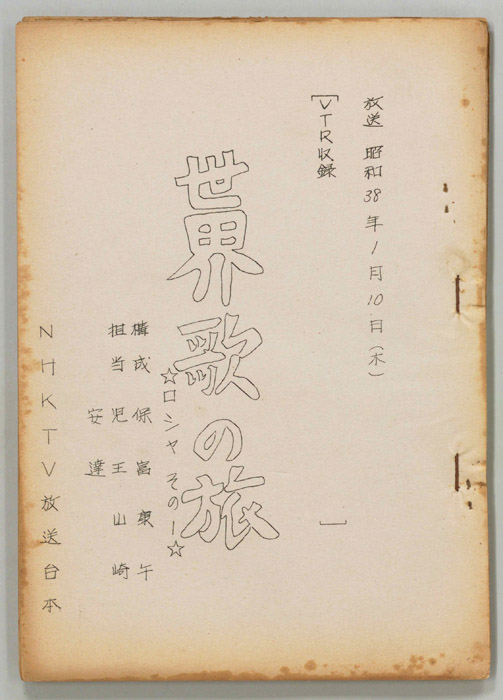 放送 昭和38年1月10日(木)
[VTR収録 ]
世界歌の旅
☆ロシヤ その一☆
構成 保富康午
担当 児玉 山崎
安達
NHKTV放送台本